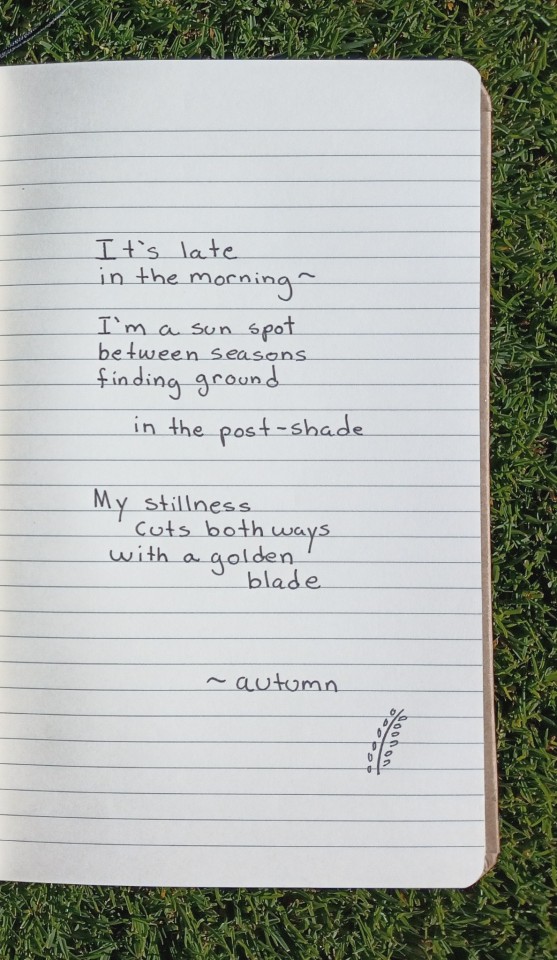 It's late
in the morning~
I'm a sun spot
between seasons
finding ground
in the post-shade
My stillness
cuts both ways
with a golden
blade
~ autumn